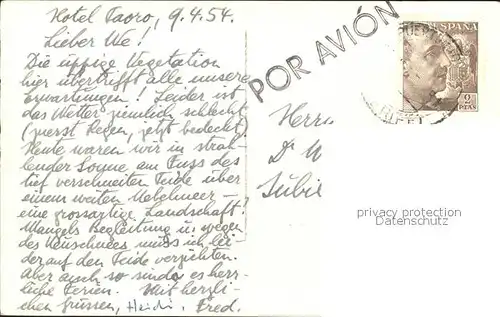 Hotel Taoro, 9.4.54.
Lieber We!
Die üppige Vegetation
hier übertrifft alle unsere
Erwartungen! Leider ist
das Wetter ziemlich schlecht
(zuerst Regen, jetzt bedeckt).
Heute waren wir in strah-
lender Sonne am Fuss des
tief verschneiten Teide über
einem weiten Nebelmeer -
eine grossartige Landschaft!
Mangels Begleitung u. wegen
des Neuschnees muss ich lei-
der auf den Teide verzichten.
Aber auch so sind es herr-
liche Ferien. Mit herzli-
chen Grüssen, Heidi, Fred.
POR AVIÓN
ESPAÑA
2
PTAS
Herrn
Dr
privacy protection
Datenschutz